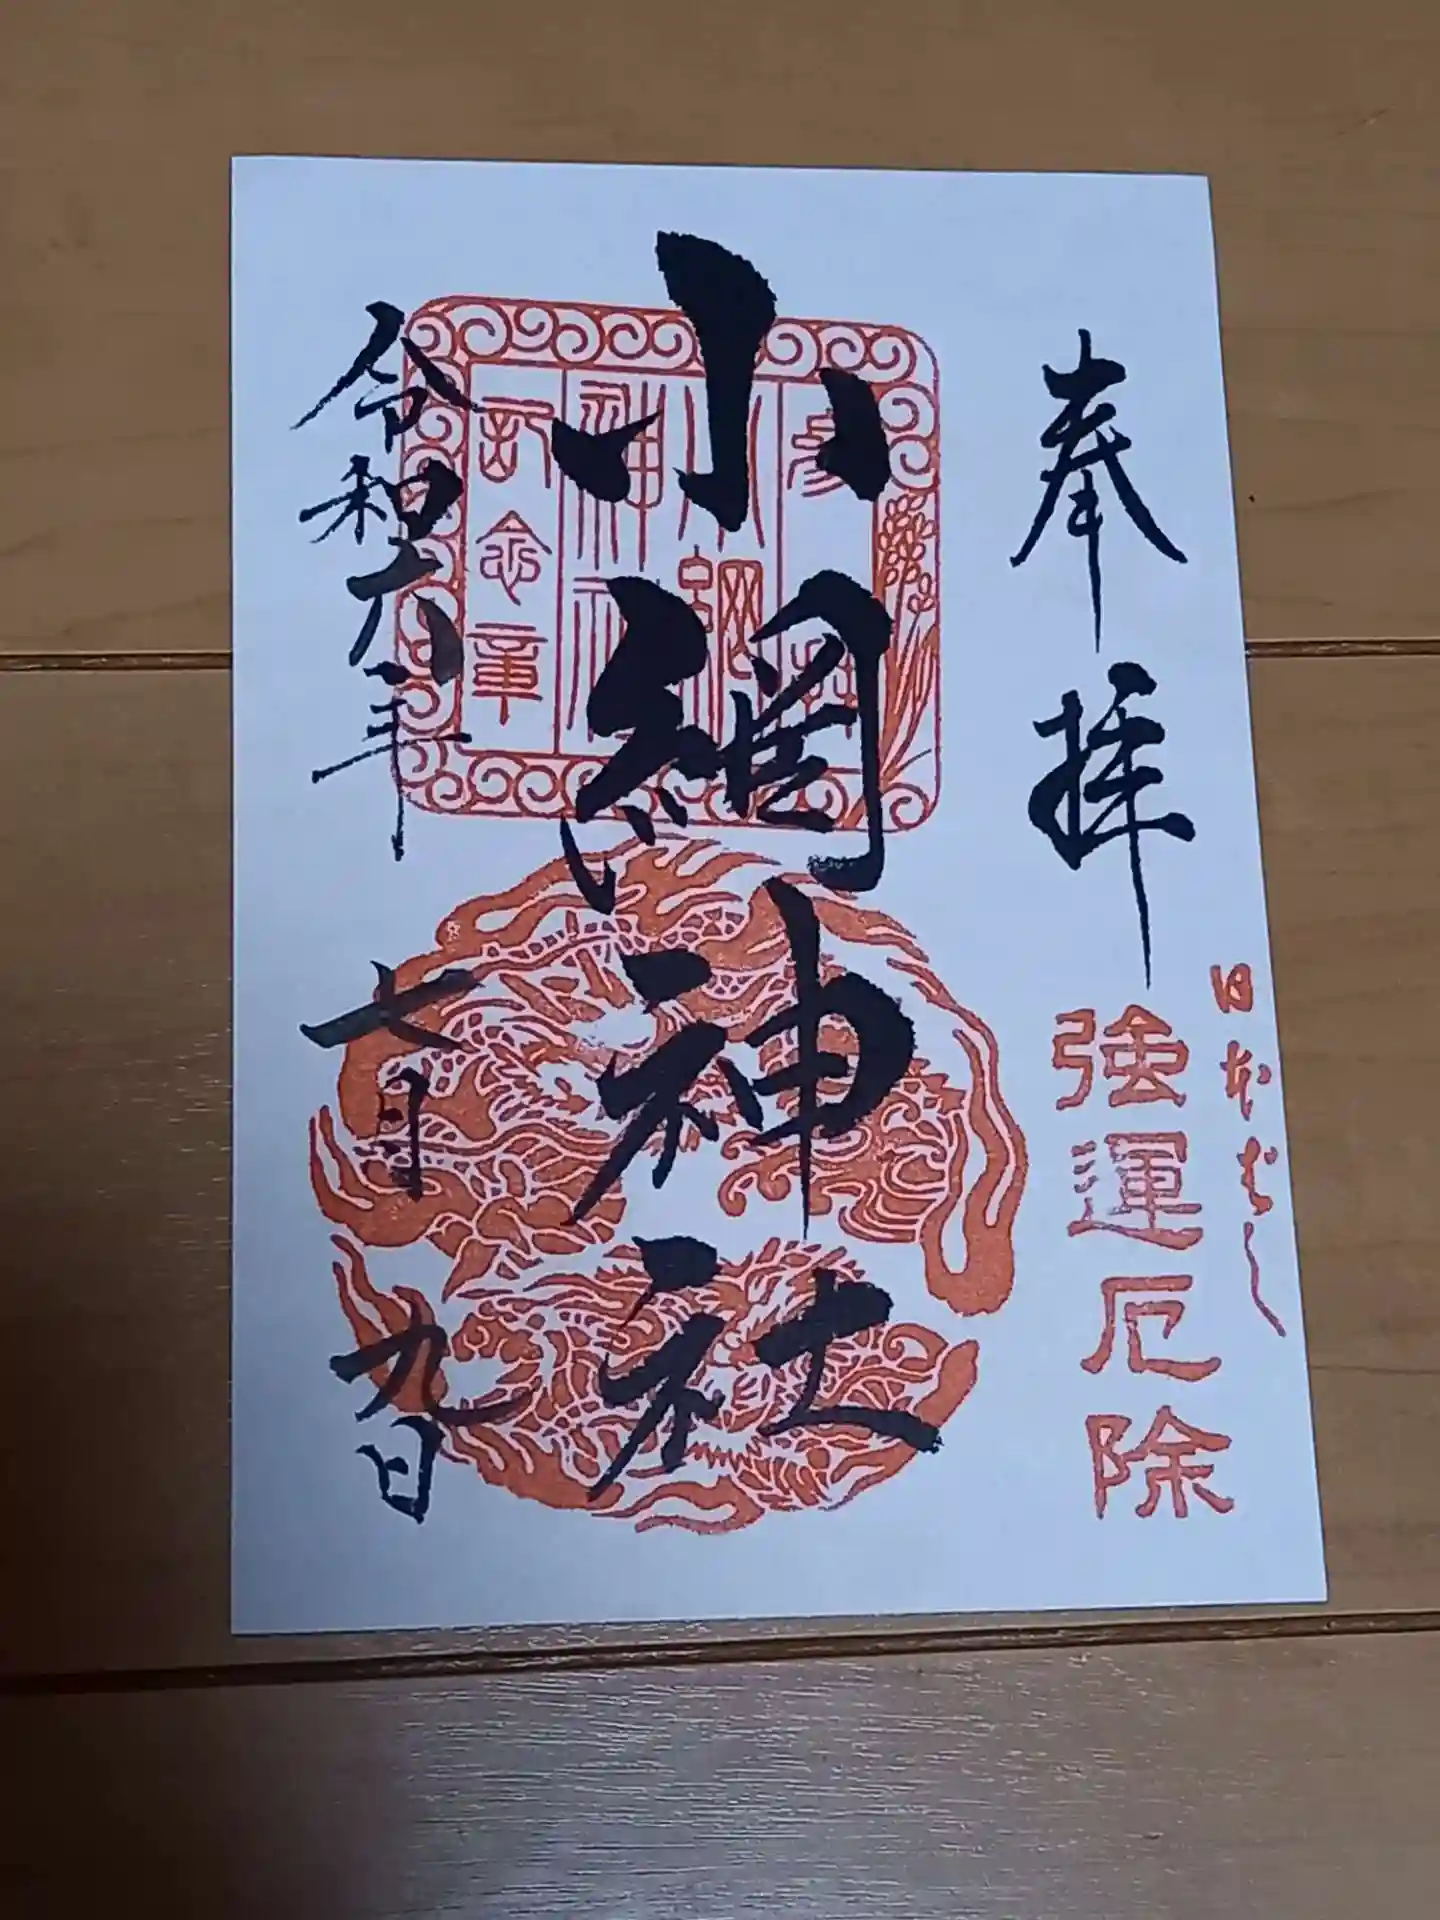 奉拝
日本ばし
強運厄除
小網神社
参拝
小網
神社
記念章
令和六年七月九日